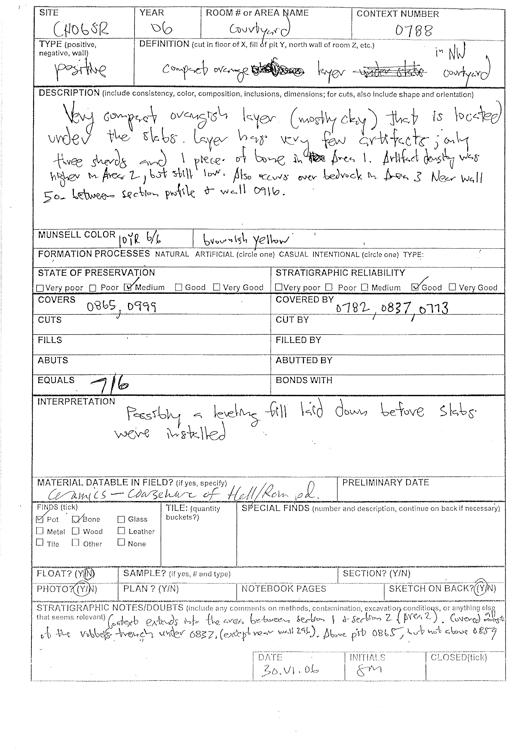 SITE YEAR ROOM # or AREA NAME CONTEXT NUMBER
CHO6SR 06 Courtyard 0788
TYPE (positive, negative, wall) DEFINITION (cut in floor of X, fill of pit Y, north wall of room Z, etc.) in NW
positive compact orange layer courtyard
DESCRIPTION (include consistency, color, composition, inclusions, dimensions; for cuts, also include shape and orientation)
Very compact orangish layer (mostly clay) that is located
under the slabs. Layer has very few artifacts; only
three sherds and 1 piece of bone in Area 1. Artifact density was
higher in Area 2, but still low. Also occurs over bedrock in Area 3 Near wall
50. between section profile + wall 0916.
MUNSELL COLOR 10YR 6/6 brownish yellow
FORMATION PROCESSES NATURAL ARTIFICIAL (circle one) CASUAL INTENTIONAL (circle one) TYPE:
STATE OF PRESERVATION STRATIGRAPHIC RELIABILITY
Very poor Poor Medium Good Very Good Very poor Poor Medium Good Very Good
COVERS 0865, 0999 COVERED BY 0782, 0837, 0713
CUTS CUT BY
FILLS FILLED BY
ABUTS ABUTTED BY
EQUALS 716 BONDS WITH
INTERPRETATION
Possibly a leveling fill laid down before slabs
were installed
MATERIAL DATABLE IN FIELD? (if yes, specify) PRELIMINARY DATE
Ceramics - Coarseware of Hell/Rom pd.
FINDS (tick) TILE: (quantity buckets?) SPECIAL FINDS (number and description, continue on back if necessary)
Pot Bone Glass
Metal Wood Leather
Tile Other None
FLOAT? (Y/N) SAMPLE? (if yes, # and type) SECTION? (Y/N)
PHOTO? (Y/N) PLAN? (Y/N) NOTEBOOK PAGES SKETCH ON BACK? (Y/N)
STRATIGRAPHIC NOTES/DOUBTS (include any comments on methods, contamination, excavation conditions, or anything else
that seems relevant) Context extends into the area between section 1 + section 2 (Area 2). Covered
of the robbers trench under 0837. (except near wall Above pit 0865, but not above 0859
DATE INITIALS CLOSED(tick)
30.VI.06 SM